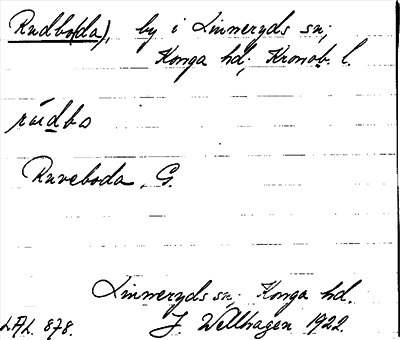 Rudbo(da), by i Linneryds sn;
Konga hd; Kronob. l.
rúdbo
Ruveboda, G.
Linneryds sn; Konga hd.
LAL. 878. J. Wellhagen 1922.